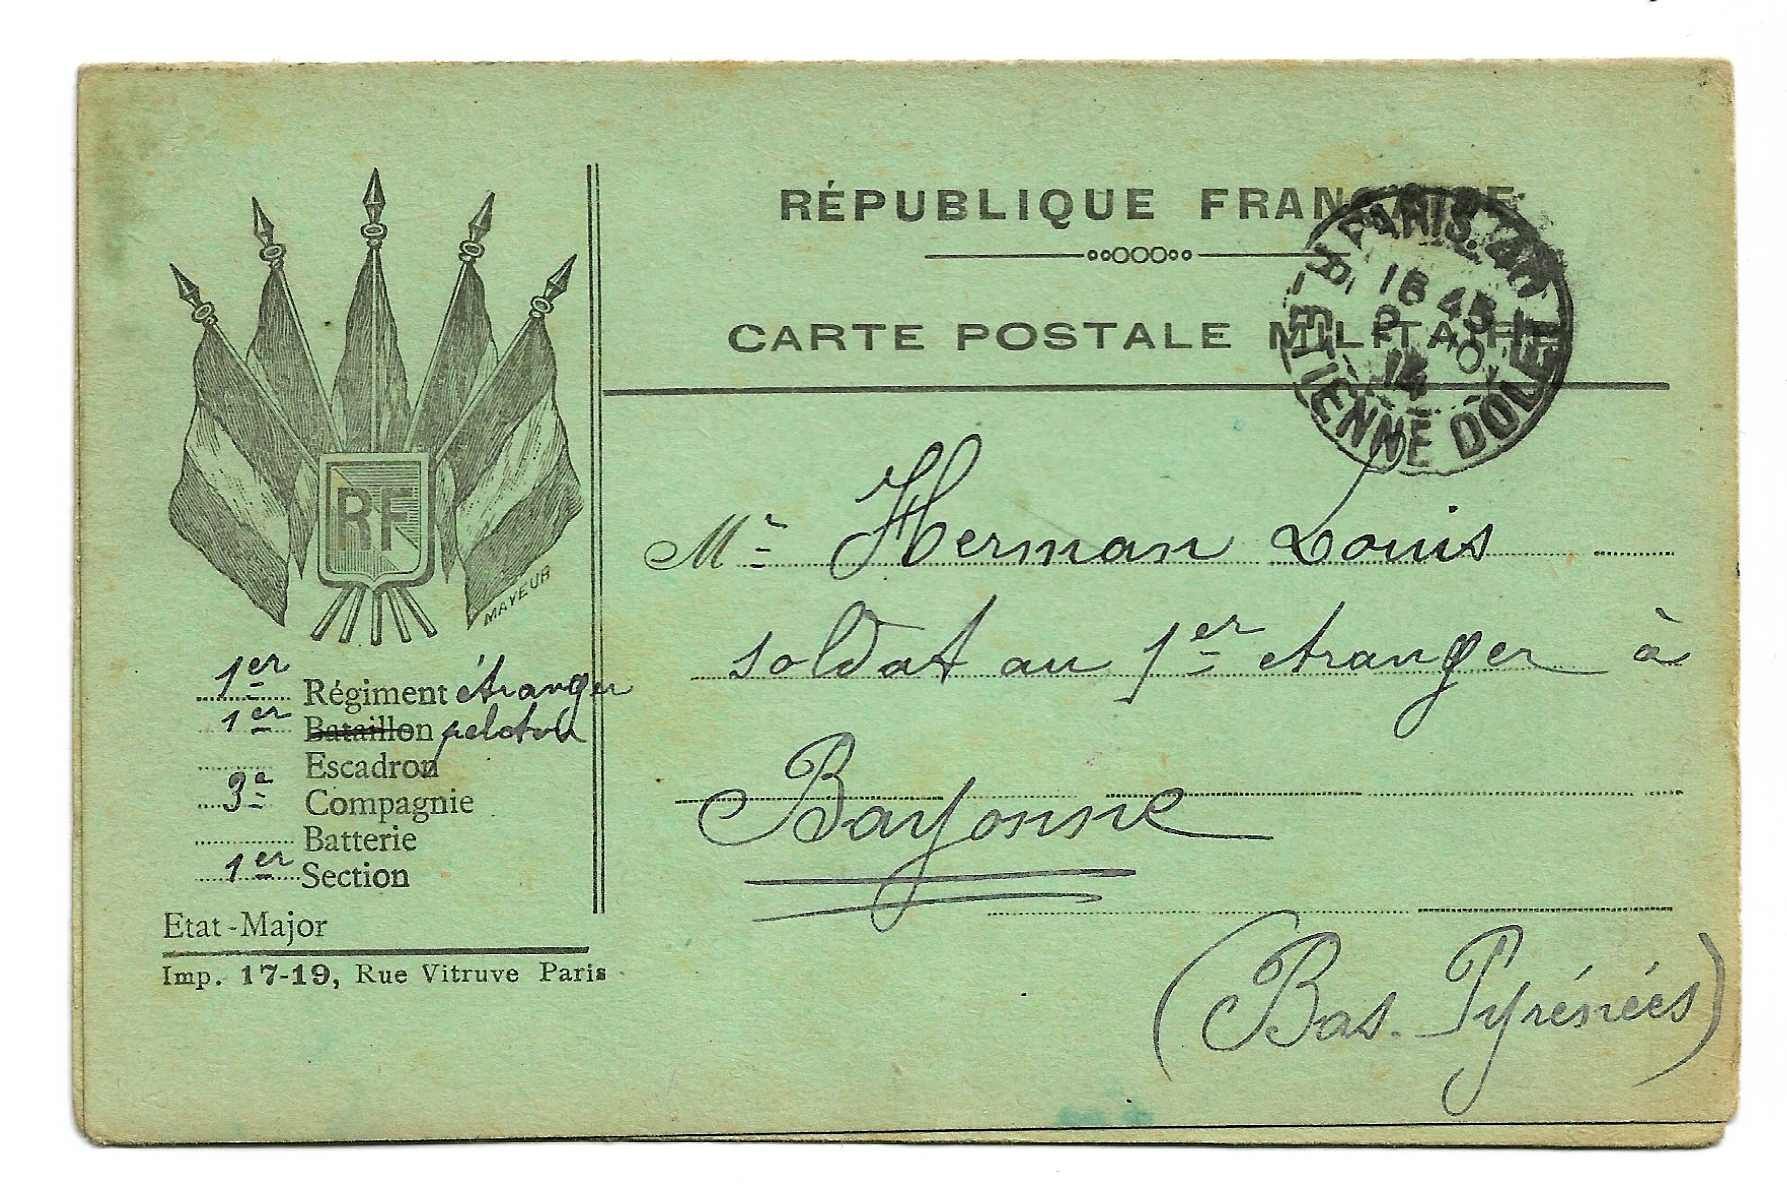 RÉPUBLIQUE FRANÇAISE
CARTE POSTALE MILITAIRE
PARIS. 40
R. ETIENNE DOLET
16 45
2 10
14
RF
MAYEUR
Mr Herman Louis
soldat au 1er etranger à
Bayonne
(Bas-Pyrénées)
1er Régiment étranger
1er Bataillon peloton
Escadron
3e Compagnie
Batterie
1er Section
Etat-Major
Imp. 17-19, Rue Vitruve Paris